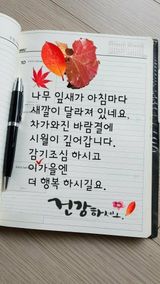 나무 잎새가 아침마다
새깔이 달라져 있네요.
차가와진 바람결에
시월이 깊어갑니다.
감기조심 하시고
이가을엔
더 행복 하시길요.
건강하세요.